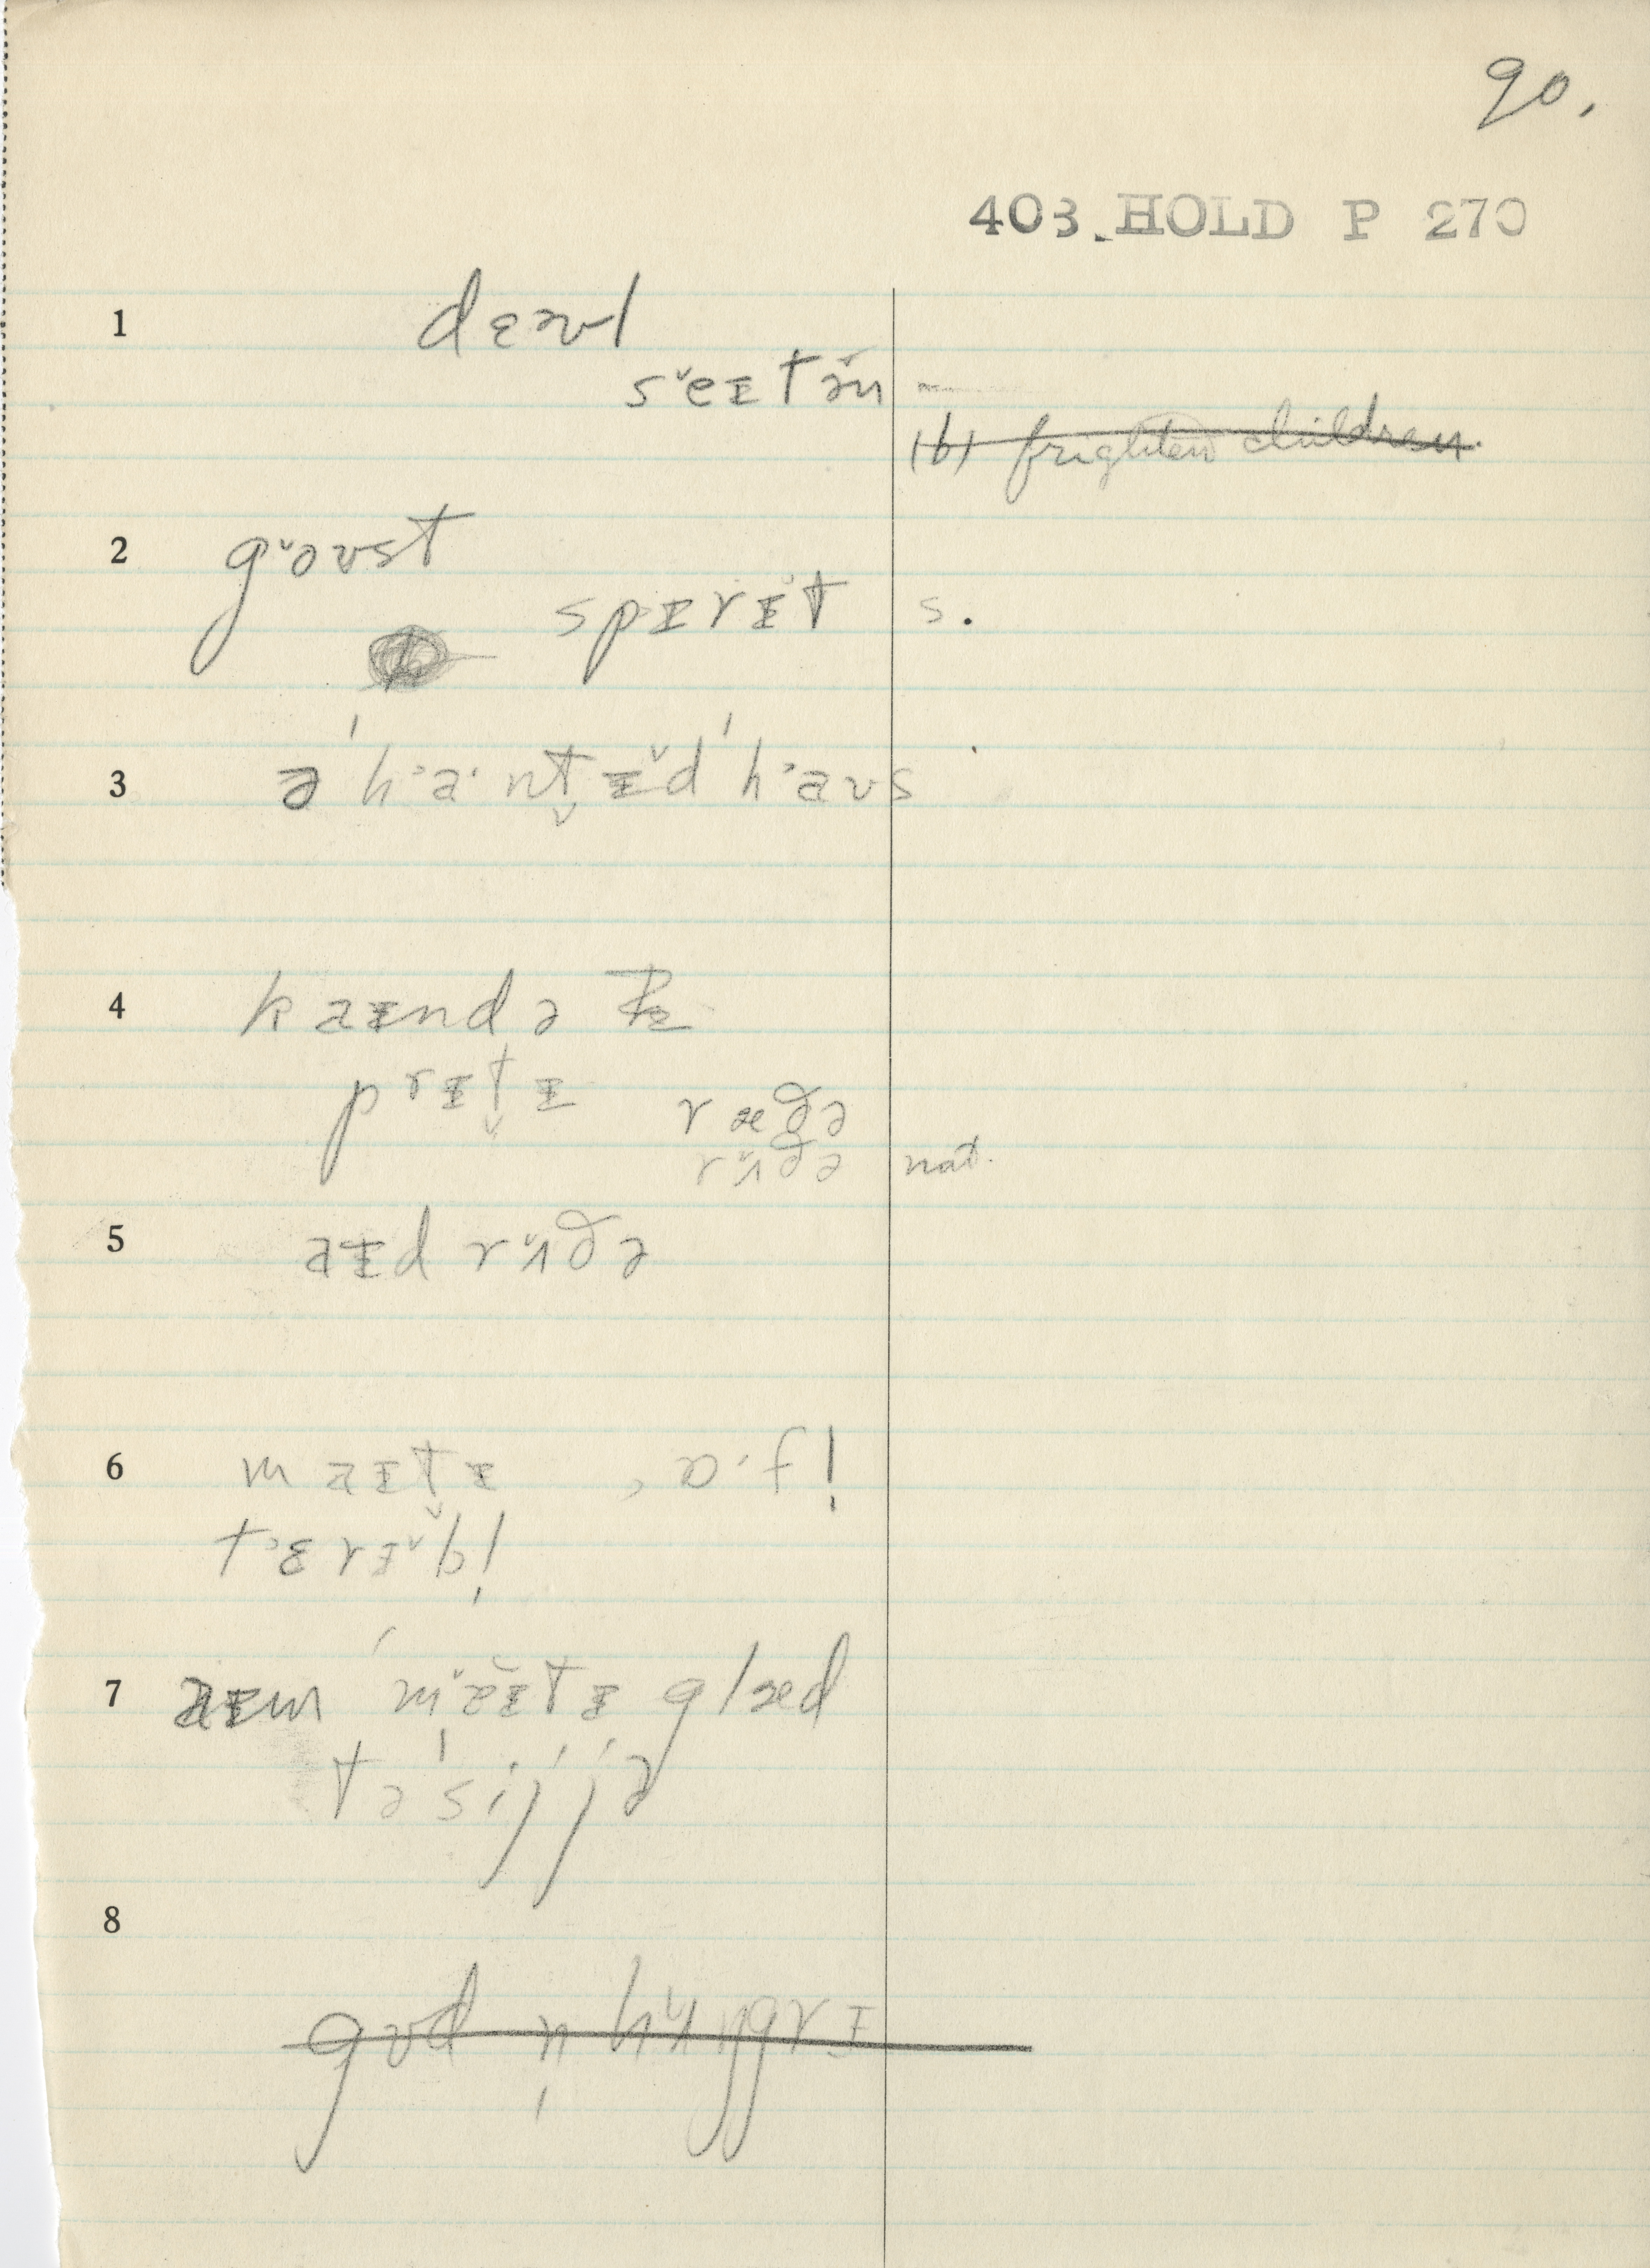 90.
403. HOLD P 270
1 dɛvl
sˇeɪtə̆n
(b) frighten children.
2 gˇoʊst
spɪrɪ̆t s.
3 ə ˈh˒a·nt̬ɪ̆d ˈh˒aʊs
4 kaɪndə
prɪt̬ɪ ræðə
rʌ̆ðə nat.
5 aɪd rʌ̆ðə
6 maɪt̬ɪ , ɒ·f!
t˒ɛrɪ̆bl̩
7 aɪm ˈmˇɛ̆ɪtɪ glæd
təˈsijjə
8
gʊd n̩ hʌ̆ŋgrɪ